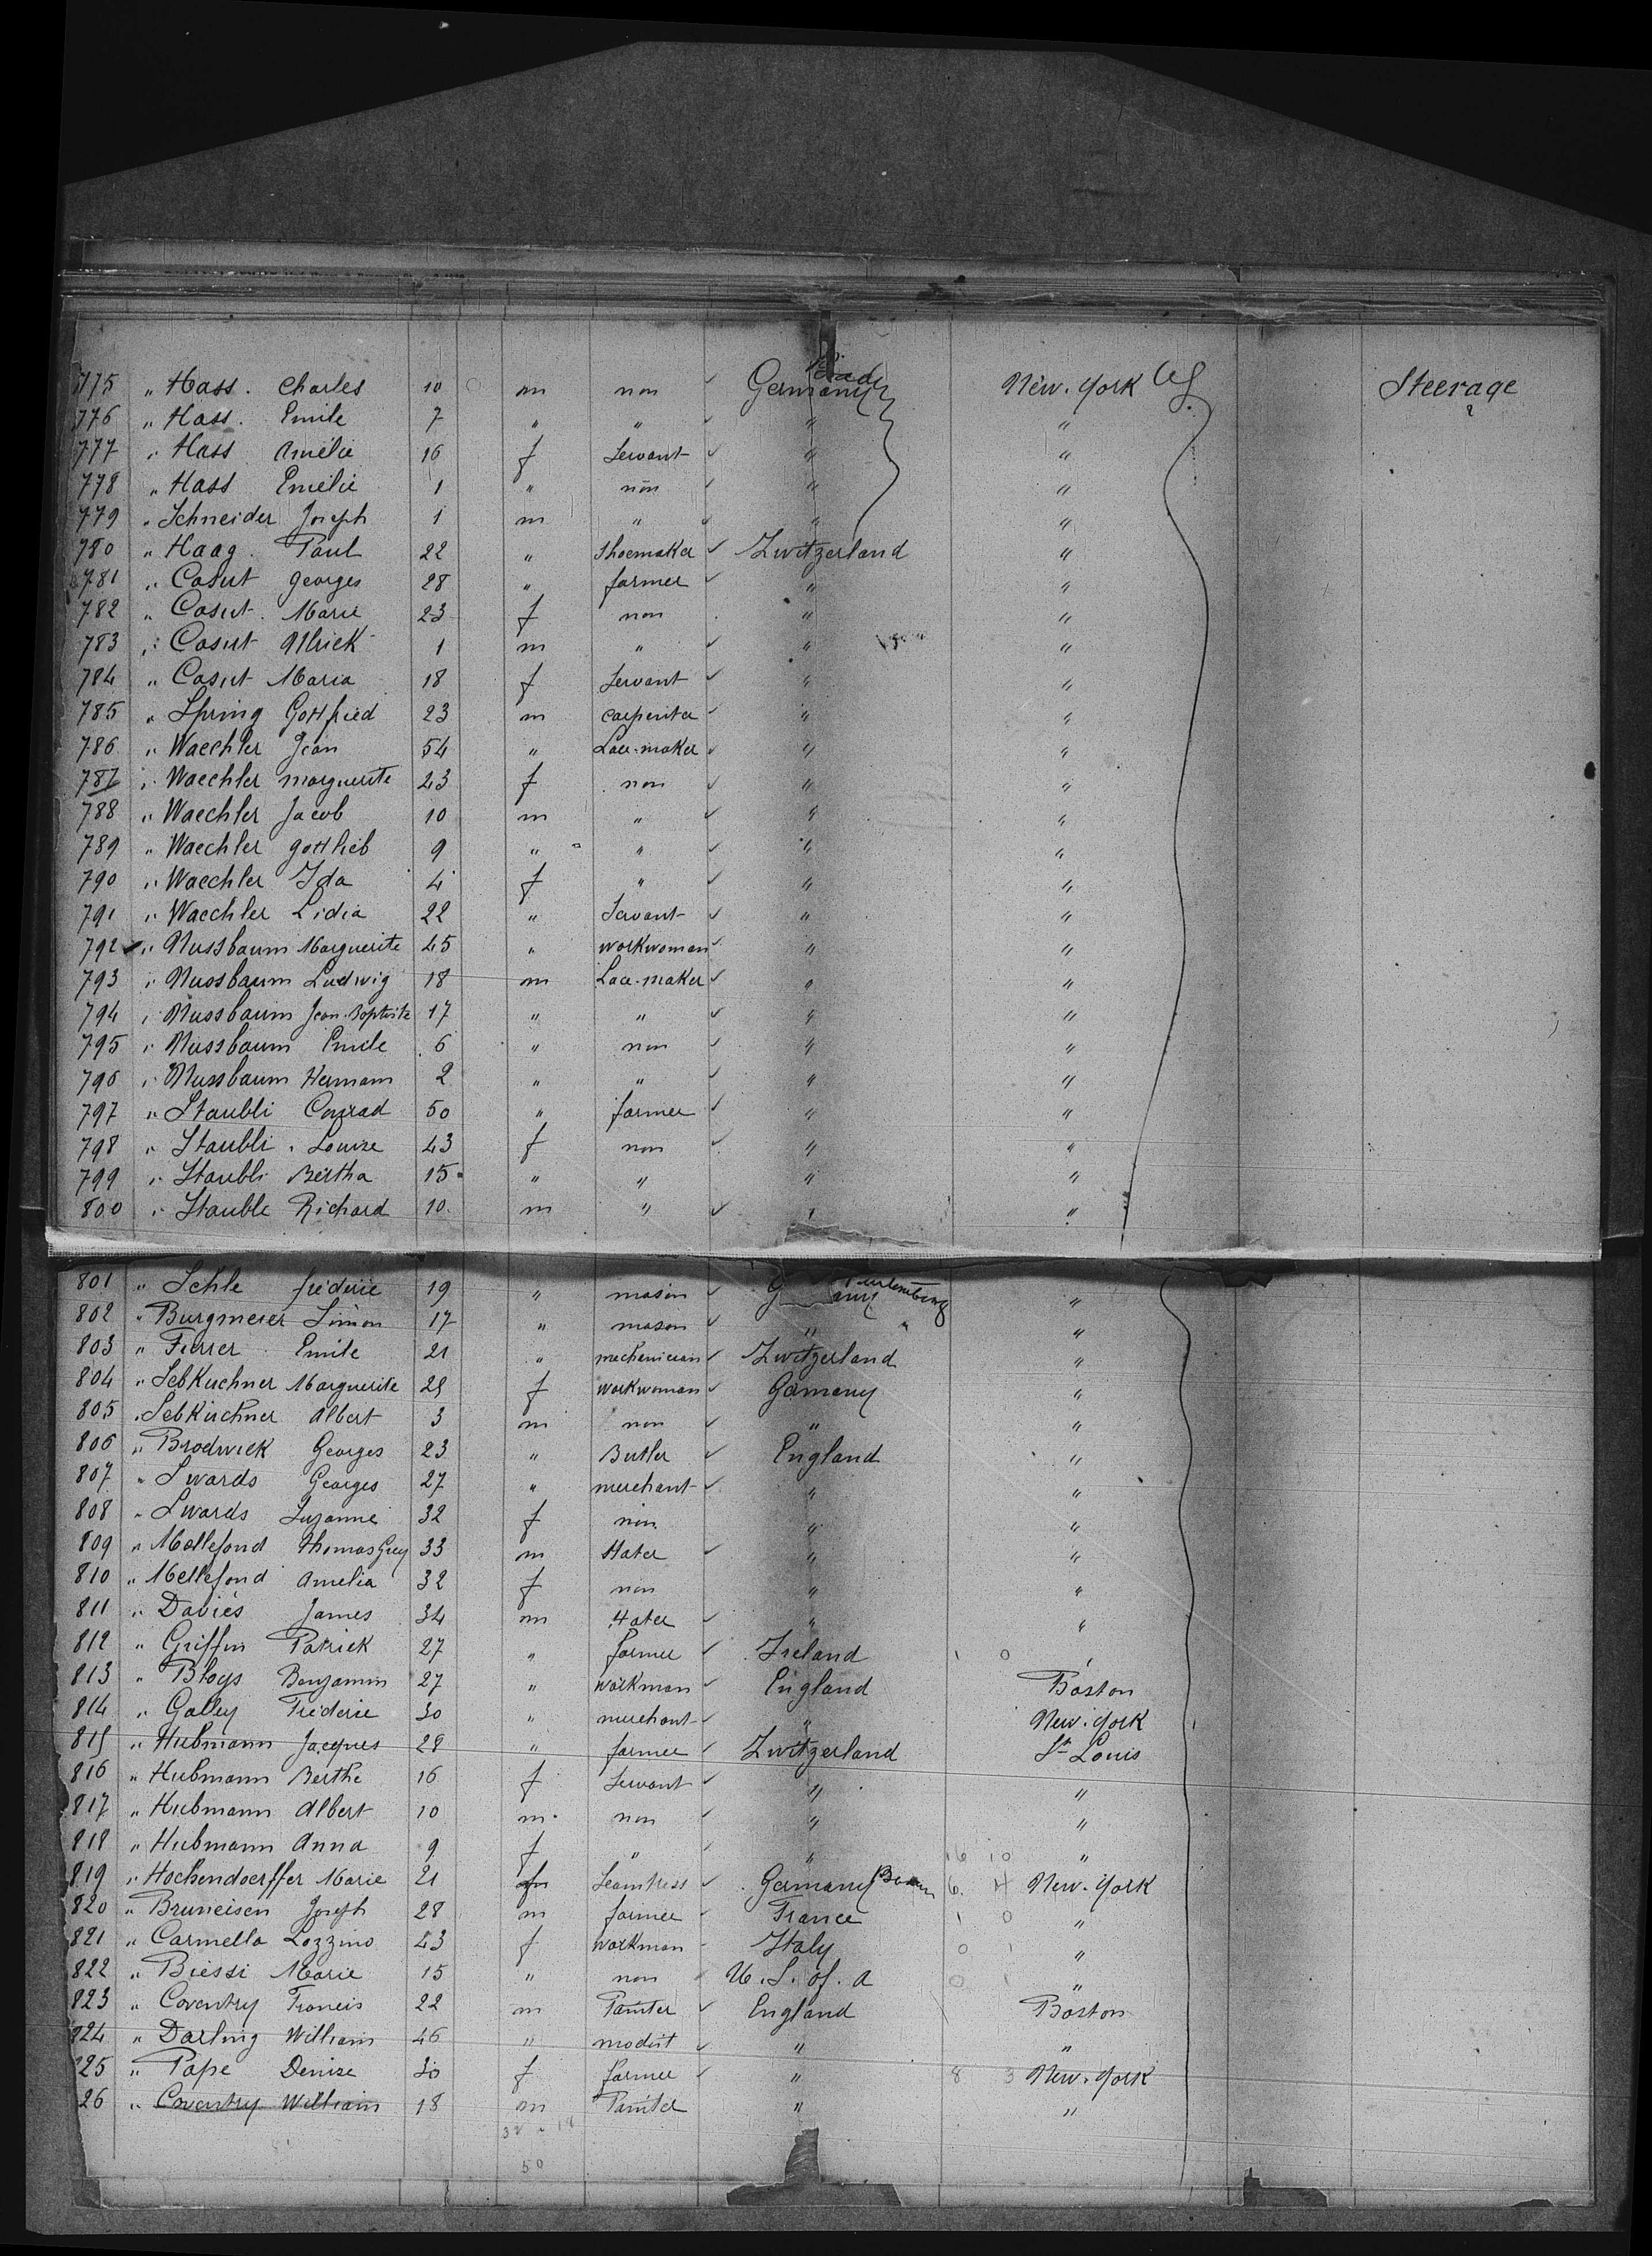 775 " Hass. Charles 10 m non Germany Bade New-York Steerage
776 " Hass. Emile 7 " " " "
777 " Hass Amélie 16 f Servant " "
778 " Hass Emélie 1 " non " "
779 " Schneider Joseph 1 m " " "
780 " Haag. Paul 22 " Shoemaker Zwitzerland "
781 " Casut Georges 28 " farmer " "
782 " Casut. Marie 23 f non " "
783 " Casut Ulrick 1 m " " "
784 " Casut Maria 18 f Servant " "
785 " Spring Gottfried 23 m carpenter " "
786 " Waechler Jean 54 " Lace-maker " "
787 " Waechler marguerite 43 f non " "
788 " Waechler Jacob 10 m " " "
789 " Waechler gottlieb 9 " " " "
790 " Waechler Ida 4 f " " "
791 " Waechler Lidia 22 " Servant " "
792 " Nussbaum Marguerite 45 " workwoman " "
793 " Nussbaum Ludwig 18 m Lace-maker " "
794 " Nussbaum Jean-Baptiste 17 " " " "
795 " Nussbaum Emile 6 " non " "
796 " Nussbaum Hermann 2 " " " "
797 " Staubli Conrad 50 " farmer " "
798 " Staubli Louise 43 f non " "
799 " Staubli Bertha 15 " " " "
800 " Stauble Richard 10 m " " "
801 " Sehle frédéric 19 " mason "
802 " Burgmeier Simon 17 " mason " "
803 " Furrer Emile 21 " mechanician Zwitzerland "
804 " Sebkuchner Marguerite 29 f workwoman Germany "
805 " Sebkirchner Albert 3 m non " "
806 " Brodwick Georges 23 " Butler England "
807 " Swards Georges 27 " merchant " "
808 " Swards Suzanne 32 f non " "
809 " Mollefond Thomas Guy 33 m Hater " "
810 " Mellefond Amelia 32 f non " "
811 " Davies James 34 m Hater " "
812 " Griffin Patrick 27 " farmer Ireland 1 0 "
813 " Bloys Benjamin 27 " workman England Boston
814 " Galley Frédéric 30 " merchant " New-York
815 " Hubmann Jacques 28 " farmer Zwitzerland St Louis
816 " Hubmann Berthe 16 f Servant " "
817 " Hubmann Albert 10 m non " "
818 " Hubmann Anna 9 f " " 16 10 "
819 " Hochendoerffer Marie 21 f Seamtress Germany 6 4 New-York
820 " Bruneisen Joseph 28 m farmer France 1 0 "
821 " Carmella Lozzino 43 f workman Italy 0 1 "
822 " Biessi Marie 15 " non U. S. of. a 0 1 "
823 " Coventry Francis 22 m Painter England Boston
824 " Darling William 46 " modist " "
825 " Pape Denise 30 f farmer " 8 3 New-York
26 " Coventry William 18 m Painter " "
50